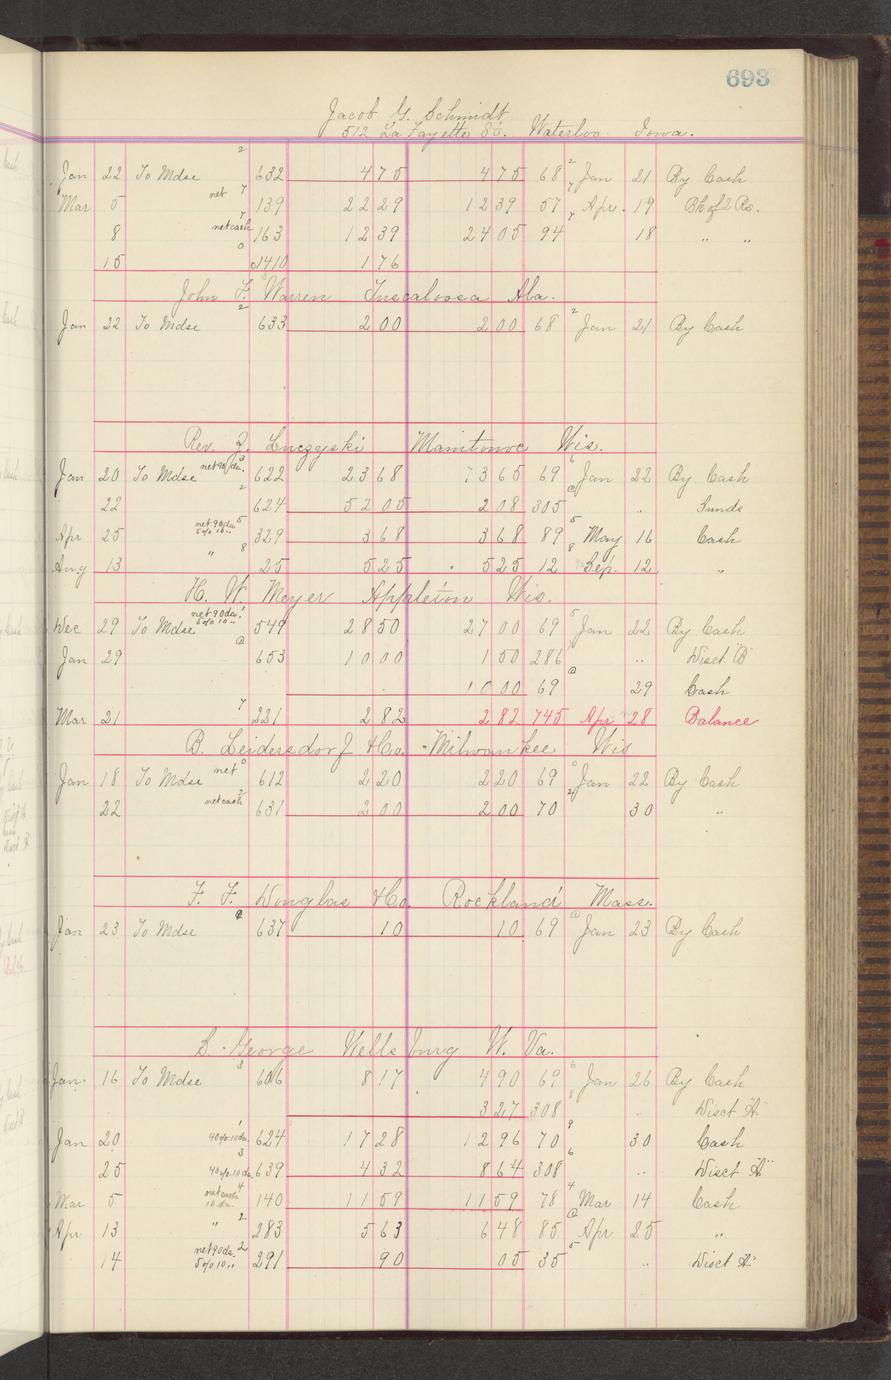 693
Jacob G. Schmidt
512 La Fayette St. Waterloo Iowa.
2 2
Jan 22 To Mdse 632 4 75 4 75 68 Jan 21 By Cash
Mar 5 net 7 139 22 29 12 39 57 7 Apr. 19 Bk of 2 Rs.
8 net cash 7 163 12 39 24 05 94 7 18 " "
15 0 1410 1 76
John F. Warren Tuscaloosa Ala.
Jan 22 To Mdse 2 633 2 00 2 00 68 2 Jan 21 By Cash
Rev. Z. Luczyski Manitowoc Wis.
Jan 20 To Mdse net 90 da. 3 622 23 68 73 65 69 6 Jan 22 By Cash
22 2 624 52 05 2 08 305 " Sunds
Apr 25 net 90 da 5 329 3 68 3 68 89 5 May 16 Cash
5% 10 "
Aug 13 " 8 25 5 25 5 25 12 8 Sep. 12 "
H. W. Meyer Appleton Wis.
Dec 29 To Mdse net 90 da. 1 549 28 50 27 00 69 5 Jan 22 By Cash
5% 10 "
Jan 29 653 10 00 1 50 286 " Disct "B"
10 00 69 29 Cash
Mar 21 7 221 2 82 2 82 745 Apr 28 Balance
B. Leidersdorf & Co. - Milwaukee Wis
Jan 18 To Mdse net 0 612 2 20 2 20 69 0 Jan 22 By Cash
22 net cash 2 631 2 00 2 00 70 2 30 "
F. F. Douglas & Co. Rockland Mass.
Jan 23 To Mdse 637 10 10 69 Jan 23 By Cash
S. George Wellsburg W. Va.
Jan. 16 To Mdse 3 606 8 17 4 90 69 6 Jan 26 By Cash
3 27 308 8 " Disct "A"
Jan 20 40% 10 da. 1 624 17 28 12 96 70 9 30 Cash
25 40% 10 da. 3 639 4 32 8 64 308 6 " Disct "A"
Mar 5 net cash 4 140 11 59 11 59 78 4 Mar 14 Cash
10 da.
Apr 13 " 2 283 5 63 6 48 85 Apr 25 "
14 net 90 da. 2 291 90 05 35 5 " Disct "A"
5% 10 "